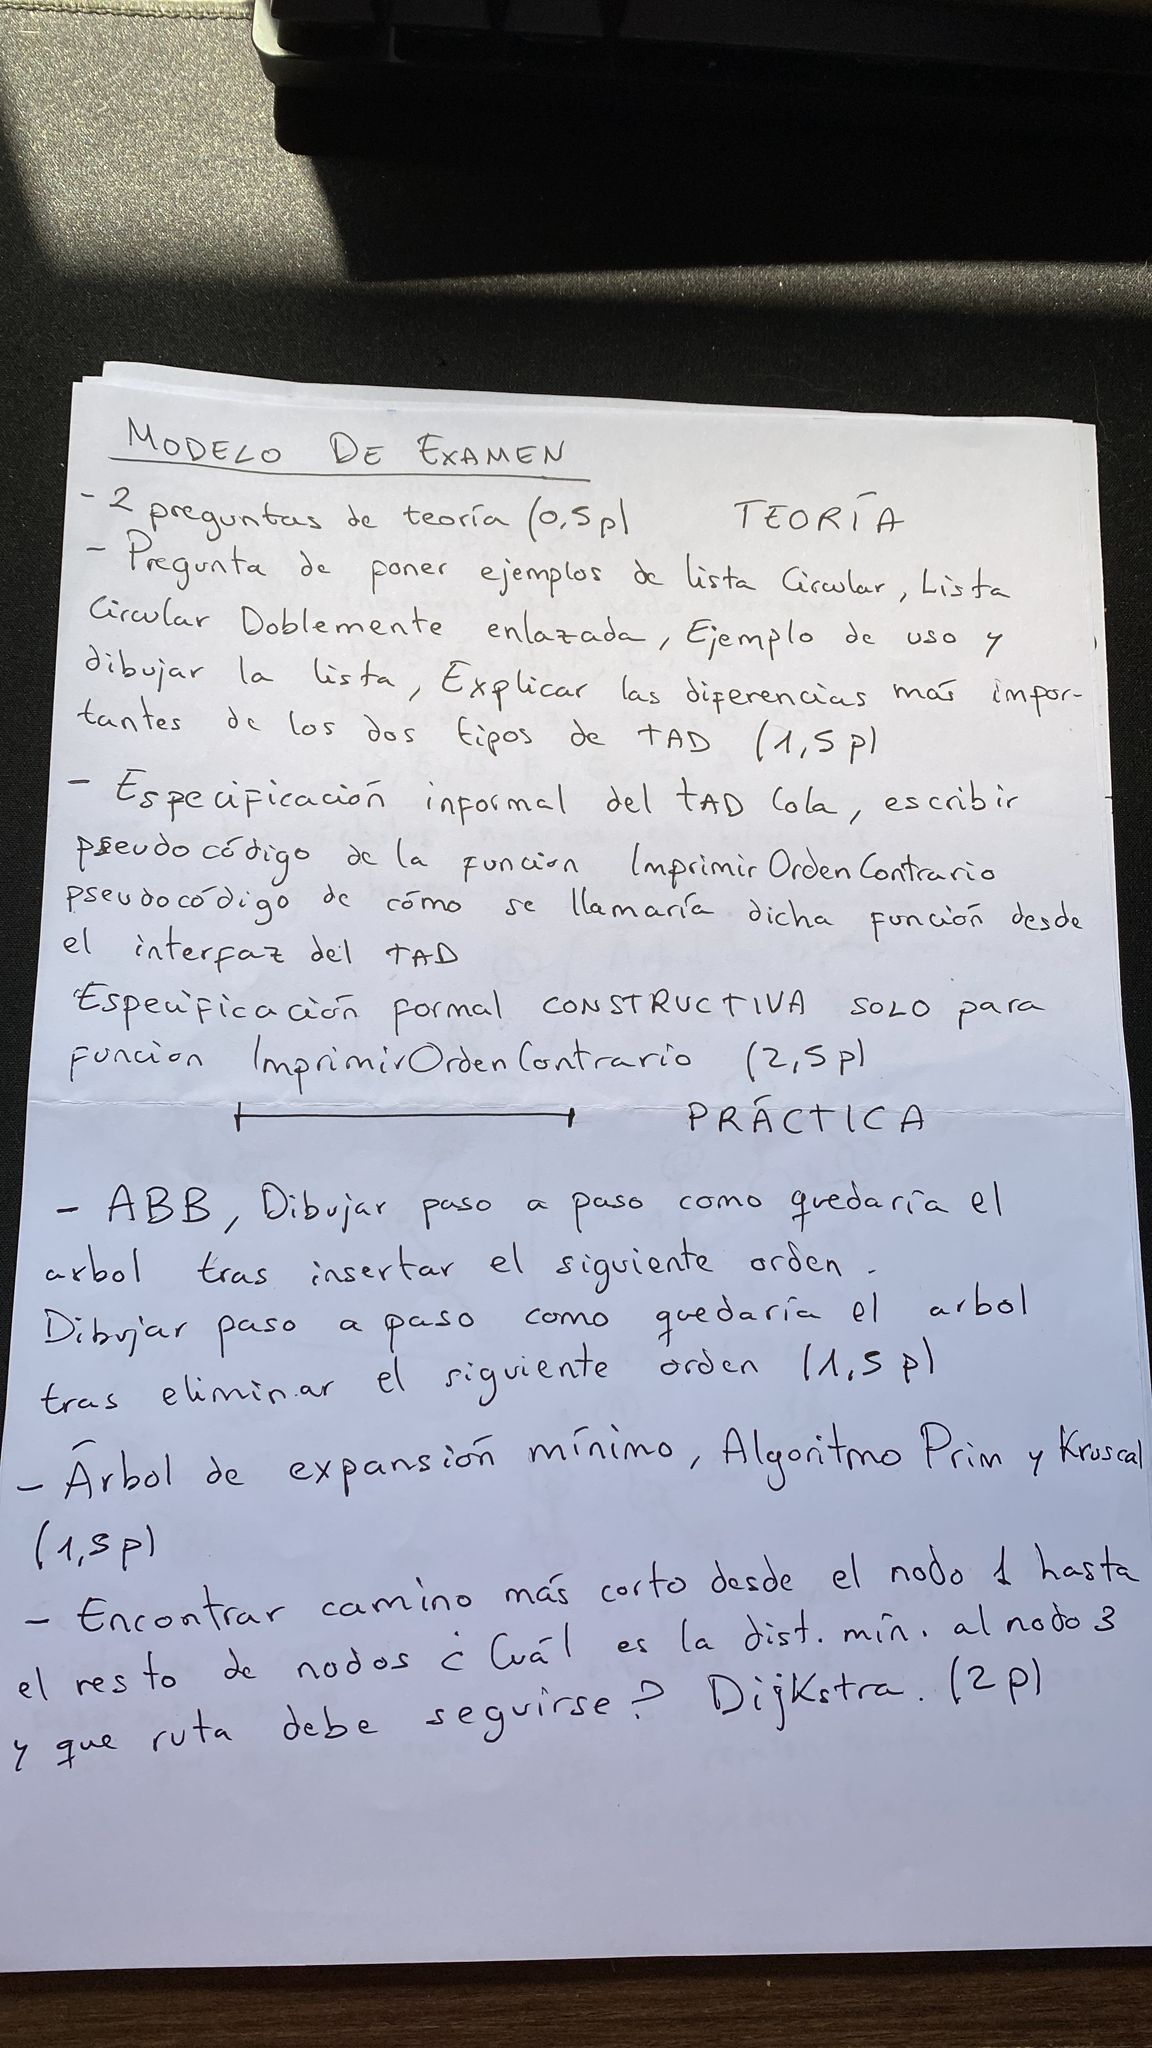 MODELO DE EXAMEN
- 2 preguntas de teoría (0,5p) TEORÍA
- Pregunta de poner ejemplos de lista Circular, Lista
Circular Doblemente enlazada, Ejemplo de uso y
dibujar la lista, Explicar las diferencias más impor-
tantes de los dos tipos de TAD (1,5p)
- Especificación informal del TAD Cola, escribir
pseudocódigo de la función ImprimirOrdenContrario
pseudocódigo de cómo se llamaría dicha función desde
el interfaz del TAD
Especificación formal CONSTRUCTIVA SOLO para
funcion ImprimirOrdenContrario (2,5p)
PRÁCTICA
- ABB, Dibujar paso a paso como quedaría el
arbol tras insertar el siguiente orden.
Dibujar paso a paso como quedaría el arbol
tras eliminar el siguiente orden (1,5p)
- Árbol de expansión mínimo, Algoritmo Prim y Kruscal
(1,5p)
- Encontrar camino más corto desde el nodo 1 hasta
el resto de nodos ¿Cuál es la dist. mín. al nodo 3
y que ruta debe seguirse? Dijkstra. (2p)